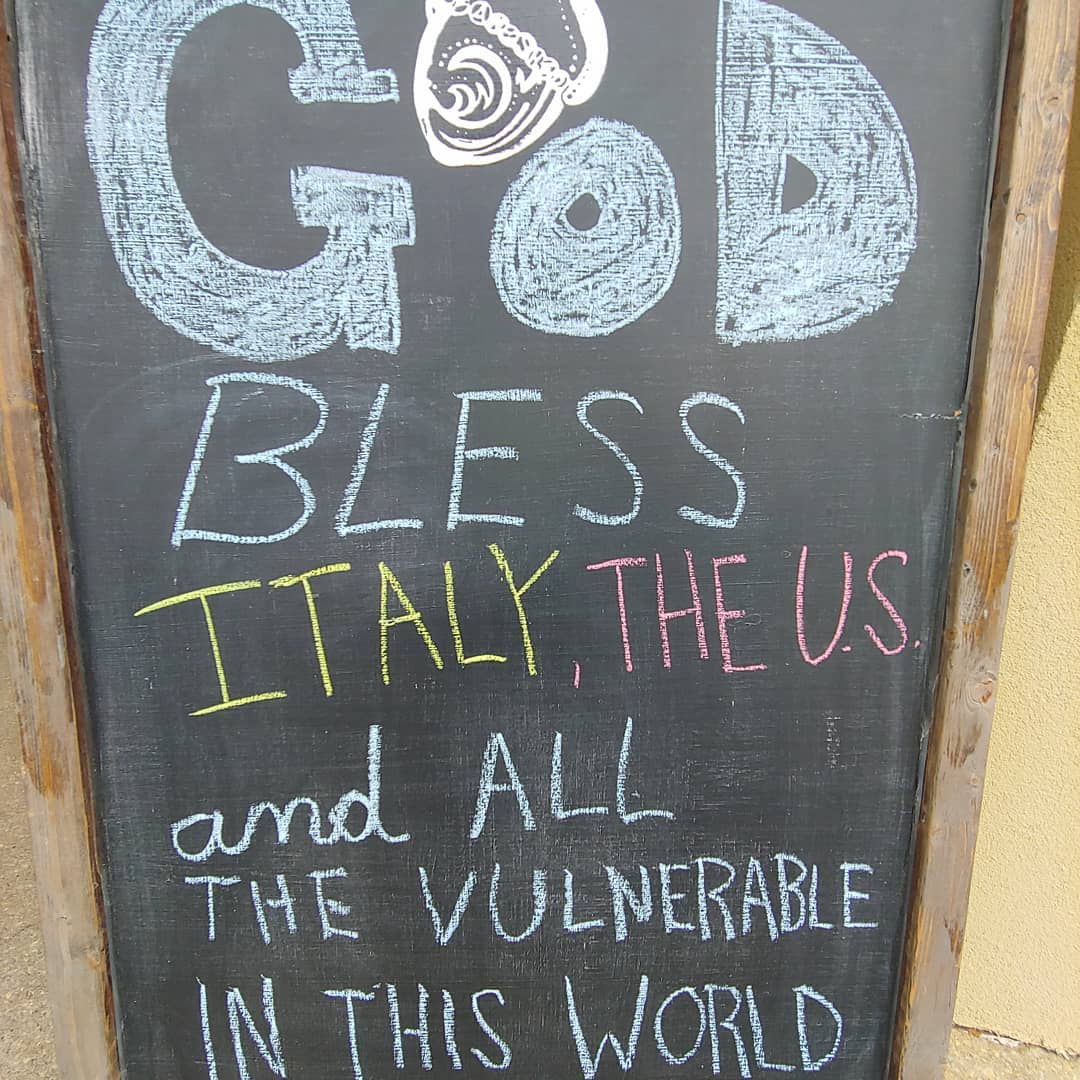 GOD
BLESS
ITALY, THE U.S.
and ALL
THE VULNERABLE
IN THIS WORLD